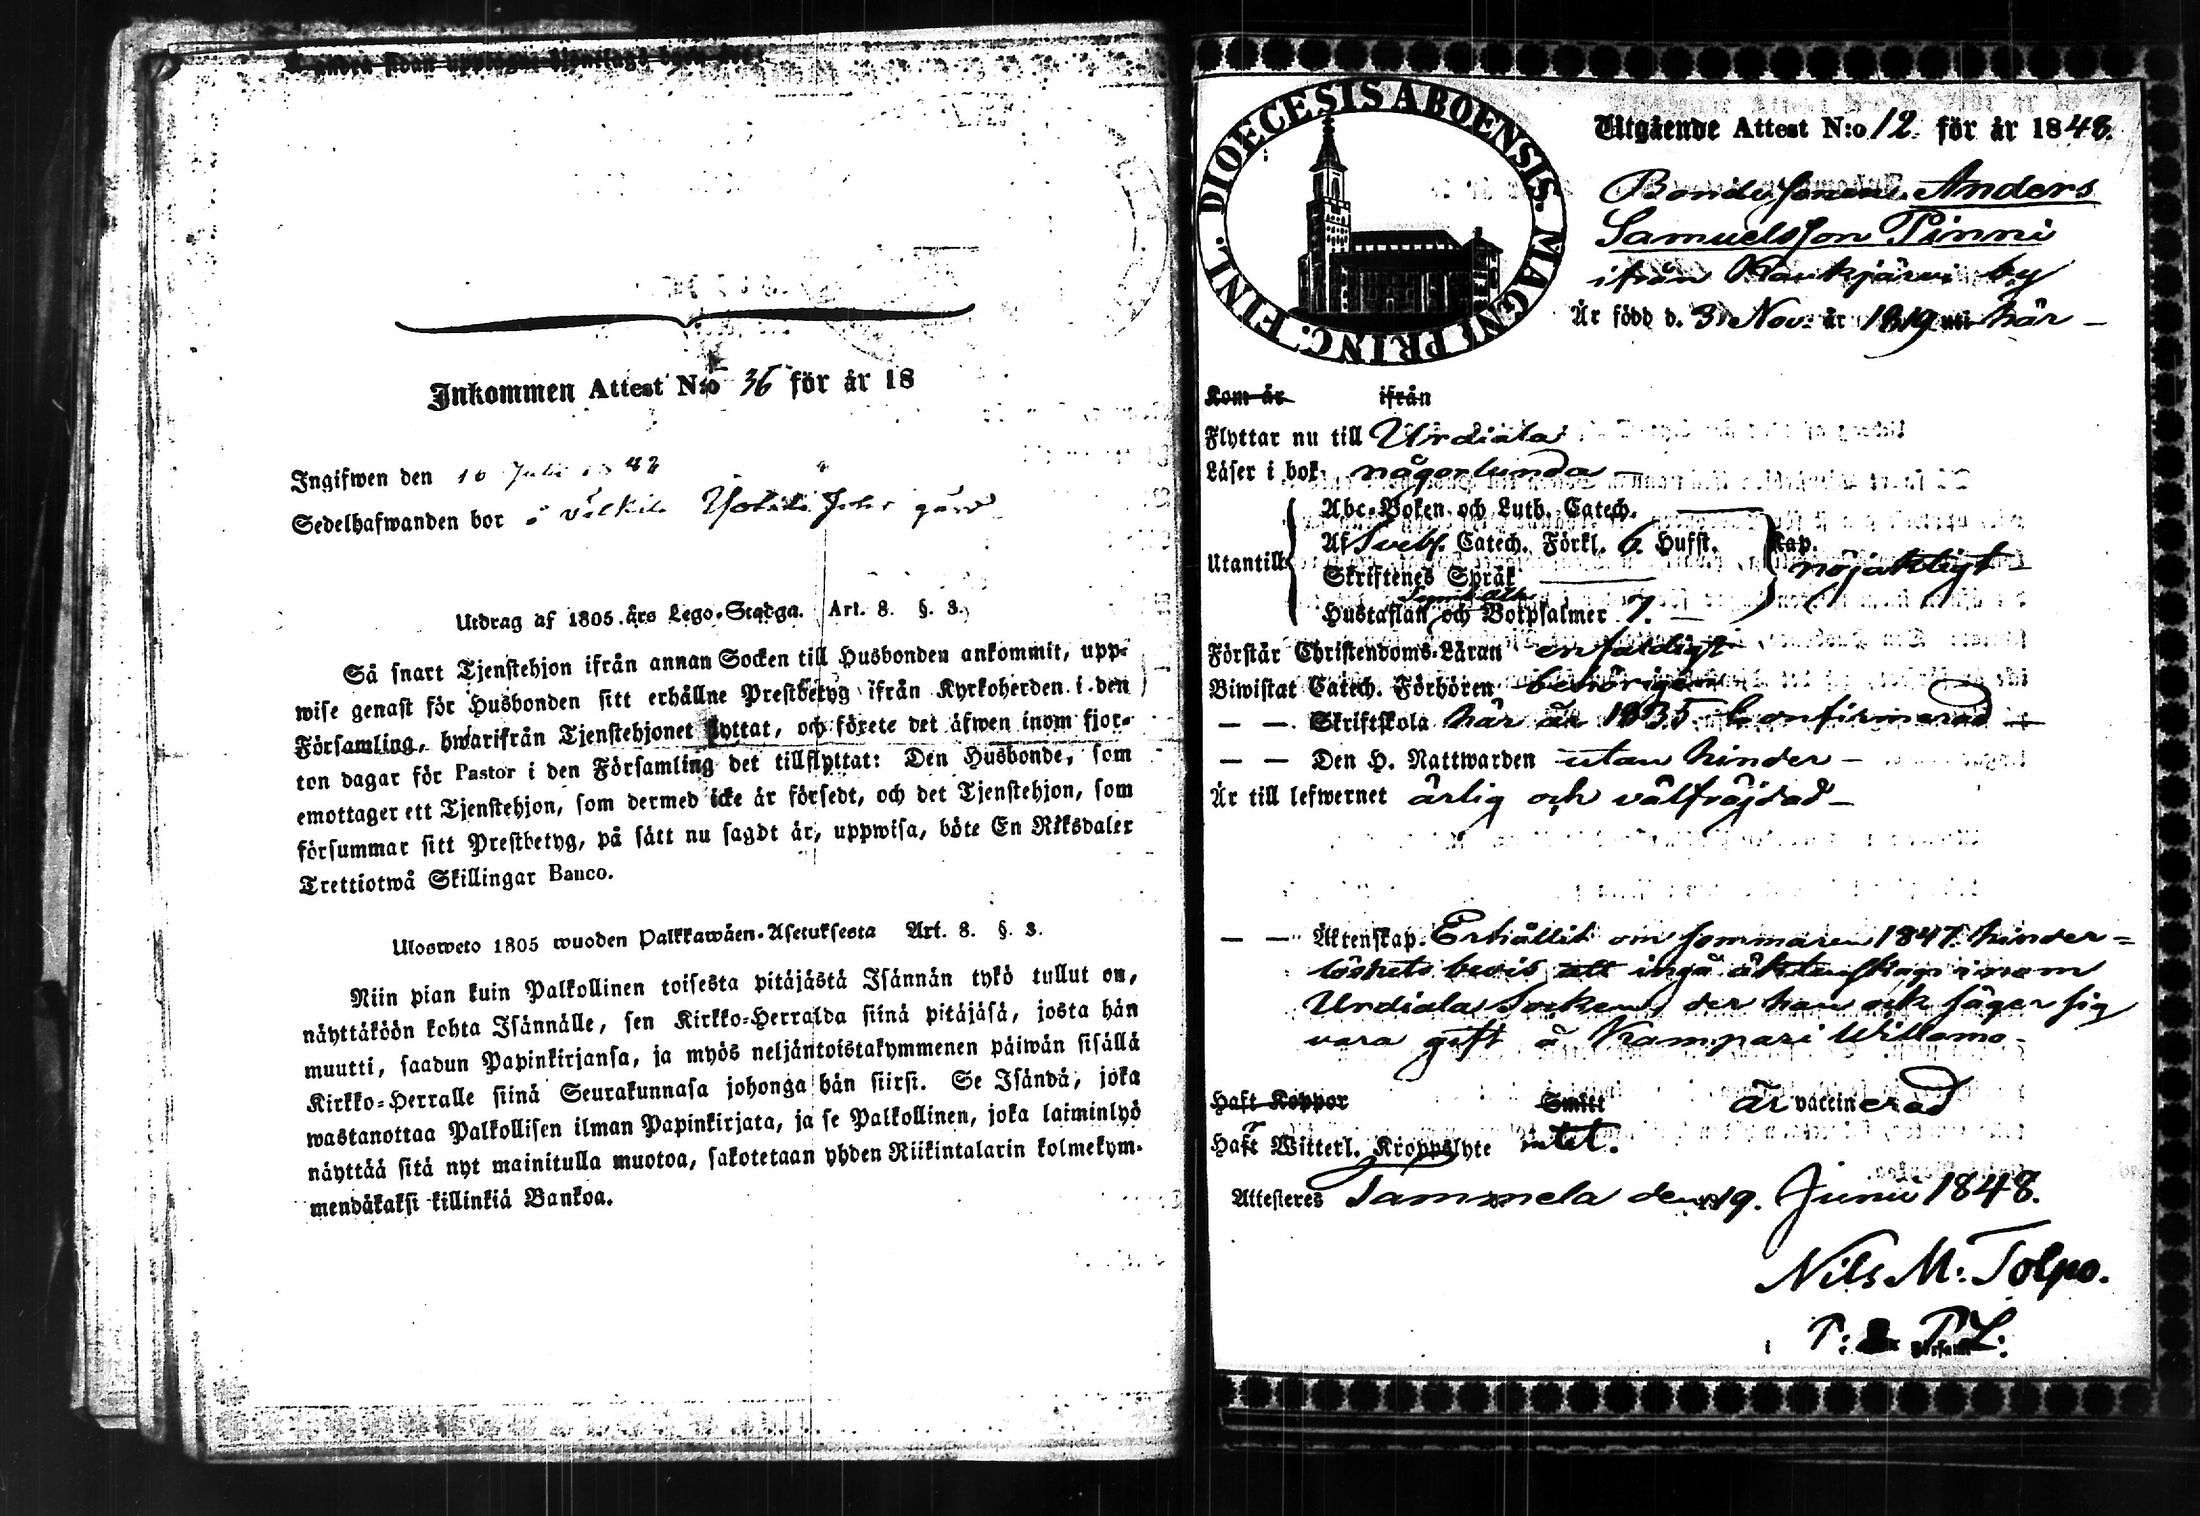 Inkommen Attest N:o 36 för år 18
Ingifwen den 10 Juli 1848
Sedelhafwanden bor å gård
Utdrag af 1805 års Lego-Stadga. Art. 8. §. 3.
Så snart Tjenstehjon ifrån annan Socken till Husbonden ankommit, upp-
wise genast för Husbonden sitt erhållne Prestbetyg ifrån Kyrkoherden i den
Församling, hwarifrån Tjenstehjonet flyttat, och förete det äfwen inom fjor-
ton dagar för Pastor i den Församling det tillflyttat: Den Husbonde, som
emottager ett Tjenstehjon, som dermed icke är försedt, och det Tjenstehjon, som
försummar sitt Prestbetyg, på sätt nu sagdt är, uppwisa, böte En Riksdaler
Trettiotwå Skillingar Banco.
Ulosweto 1805 wuoden Palkkawäen-Asetuksesta Art. 8. §. 3.
Niin pian kuin Palkollinen toisesta pitäjästä Isännän tykö tullut on,
näyttäköön kohta Isännälle, sen Kirkko-Herralda siinä pitäjäsä, josta hän
muutti, saadun Papinkirjansa, ja myös neljäntoistakymmenen päiwän sisällä
Kirkko-Herralle siinä Seurakunnasa johonga hän siirsi. Se Isändä, joka
wastanottaa Palkollisen ilman Papinkirjata, ja se Palkollinen, joka laiminlyö
näyttää sitä nyt mainitulla muotoa, sakotetaan yhden Riikintalarin kolmekym-
mendäkaksi killinkiä Bankoa.
DIOECESIS ABOENSIS. MAGNI PRINC. FINL.
Utgående Attest N:o 12. för år 1848.
Bondesonen Anders
Samuelsson Pinni
ifrån Kaukjärvi by
Är född d. 3 Nov. år 1819 uti här –
Kom år ifrån
Flyttar nu till Urdiala
Läser i bok någorlunda
Utantill
Abc-Boken och Luth. Catech.
Af Sveb. Catech. Förkl. 6. Hufst. Kap.
Skriftenes Språk
nöjaktligt –
Symb. Ath.
Hustaflan och Botpsalmer 7. –
Förstår Christendoms-Läran enfaldigt
Biwistat Catech. Förhören behörigen
– – Skriftskola här år 1835. Confirmerad –
– – Den H. Nattwarden utan hinder –
Är till lefwernet ärlig och välfräjdad –
– – Äktenskap. Erhållit om sommaren 1847. hinder=
löshets bevis att ingå äktenskap inom
Urdiala Socken, der han ock säger sig
vara gift å Kampari Willamo –
Haft Koppor Smitt är vaccinerad
Haft Witterl. Kroppslyte intet.
Attesteres Tammela den 19. Junii 1848.
Nils M: Tolpo.
P: P.L:
i